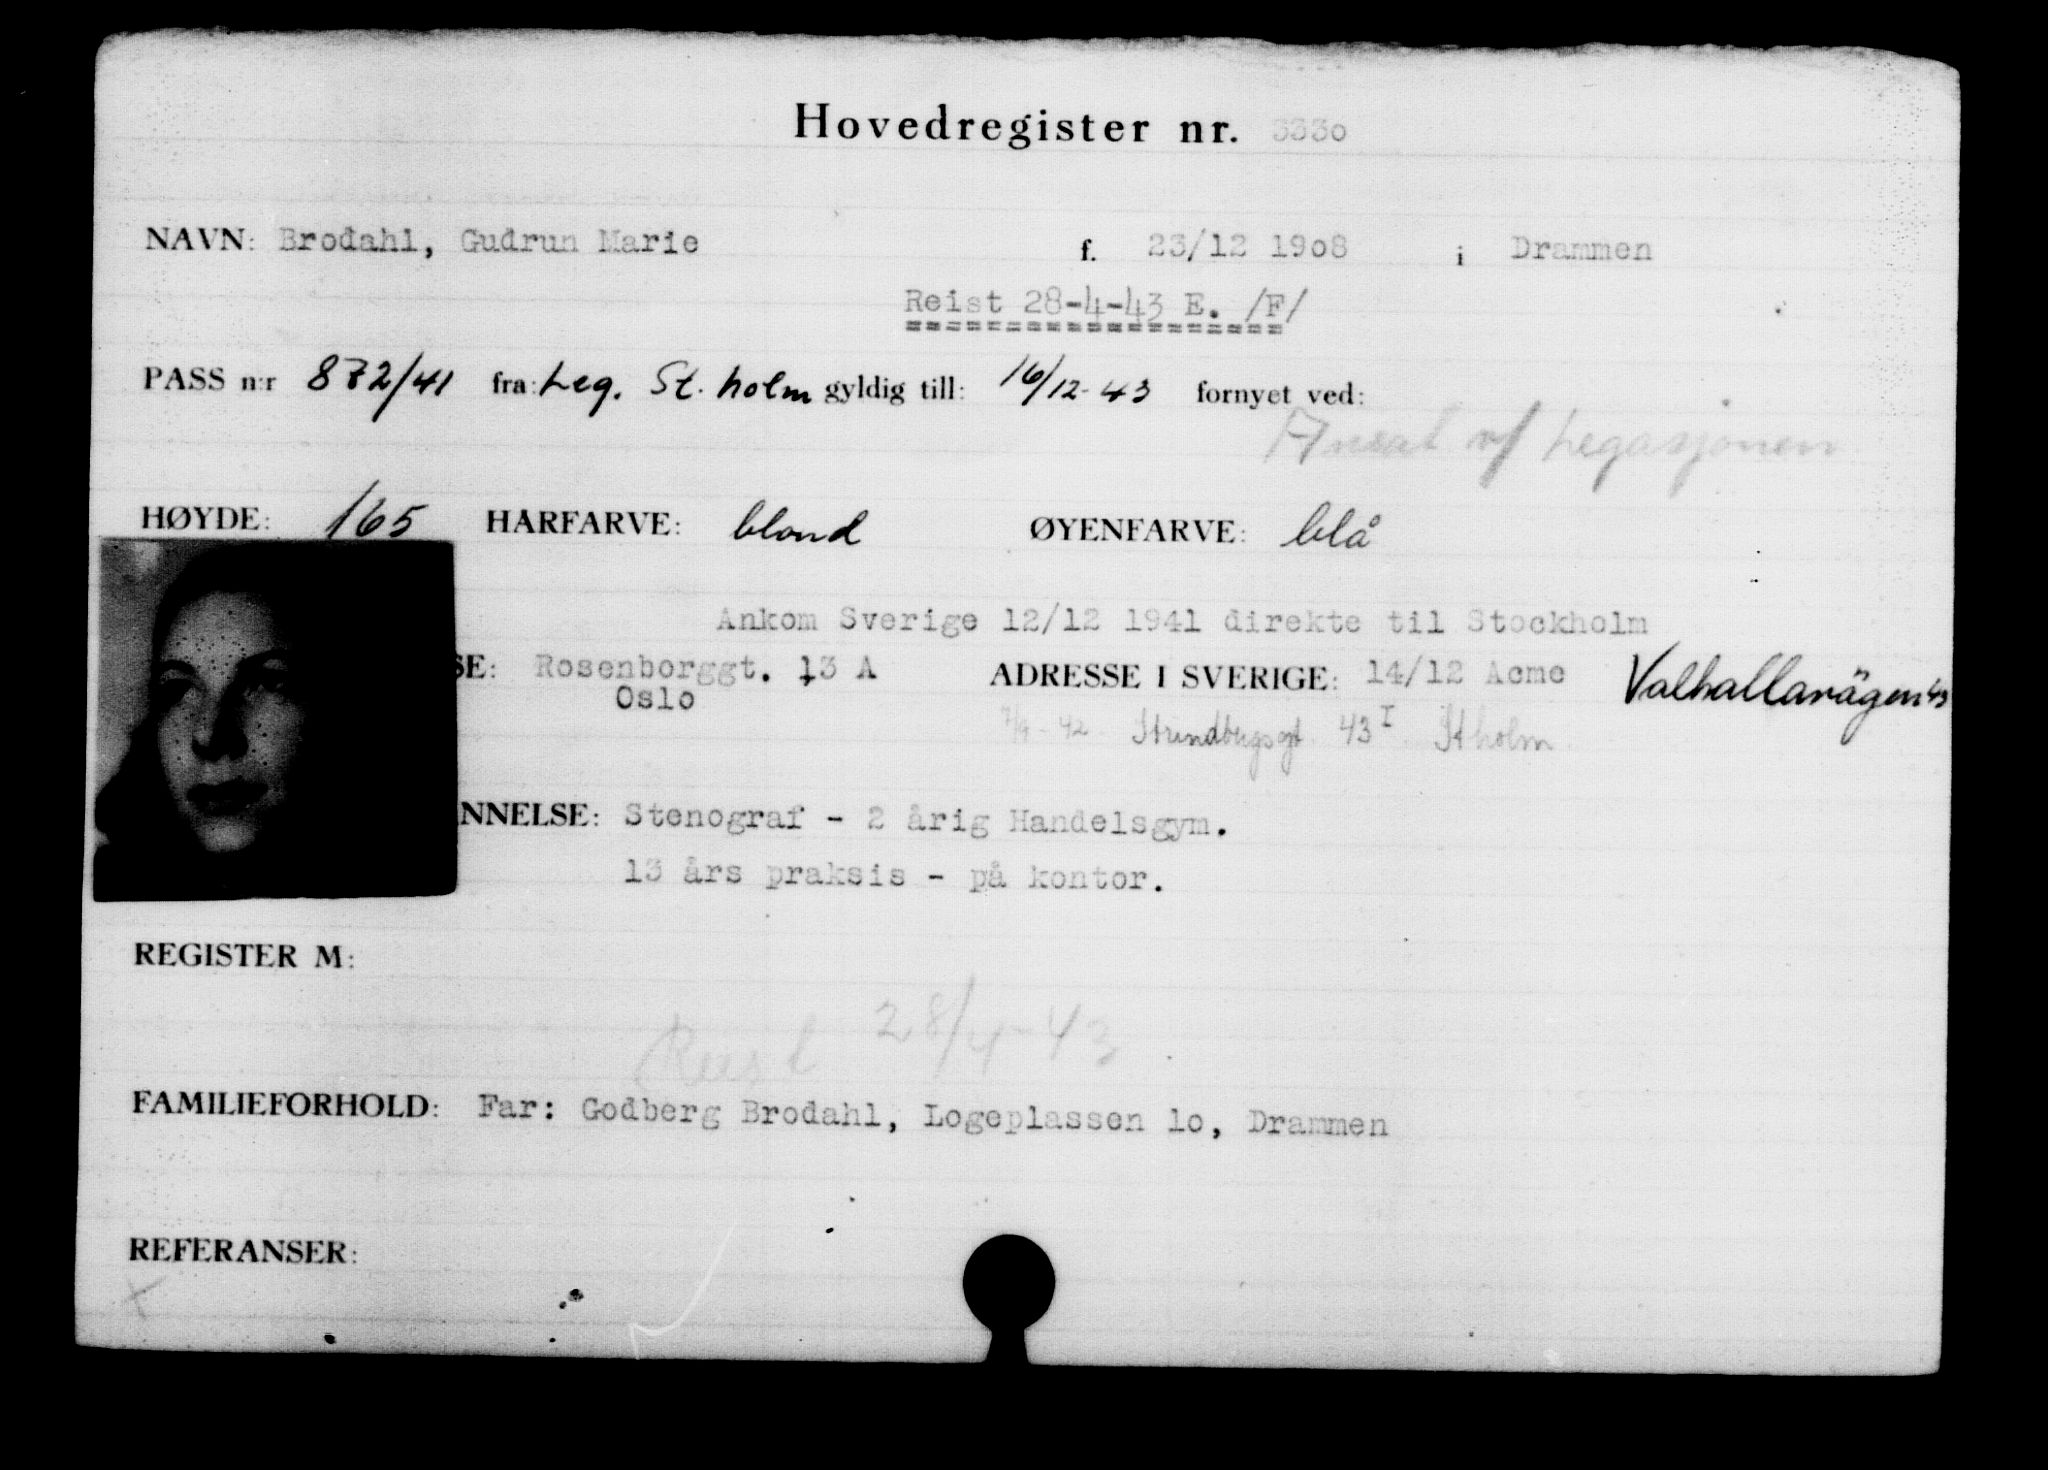 Hovedregister nr. 3330
NAVN: Brodahl, Gudrun Marie f. 23/12 1908 i Drammen
Reist 28-4-43 E. /F/
PASS n:r 872/41 fra: Leg. St. holm gyldig till: 16/12-43 fornyet ved:
Ansat v/ Legasjonen
HØYDE: 165 HARFARVE: blond ØYENFARVE: blå
Ankom Sverige 12/12 1941 direkte til Stockholm
SE: Rosenborggt. 13 A ADRESSE I SVERIGE: 14/12 Acme Valhallavägen 43
Oslo
7/9-42 Strindbergsgt 43 I Stholm
NNELSE: Stenograf - 2 årig Handelsgym.
13 års praksis - på kontor.
REGISTER M:
Reist 28/4-43
FAMILIEFORHOLD: Far: Godberg Brodahl, Logeplassen 10, Drammen
REFERANSER:
x